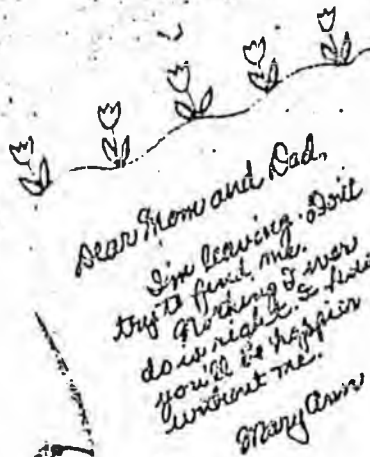 Dear Mom and Dad,
I'm leaving. Don't
try to find me.
Nothing I ever
do is right. I hope
you'll be happier
without me.
Mary Ann